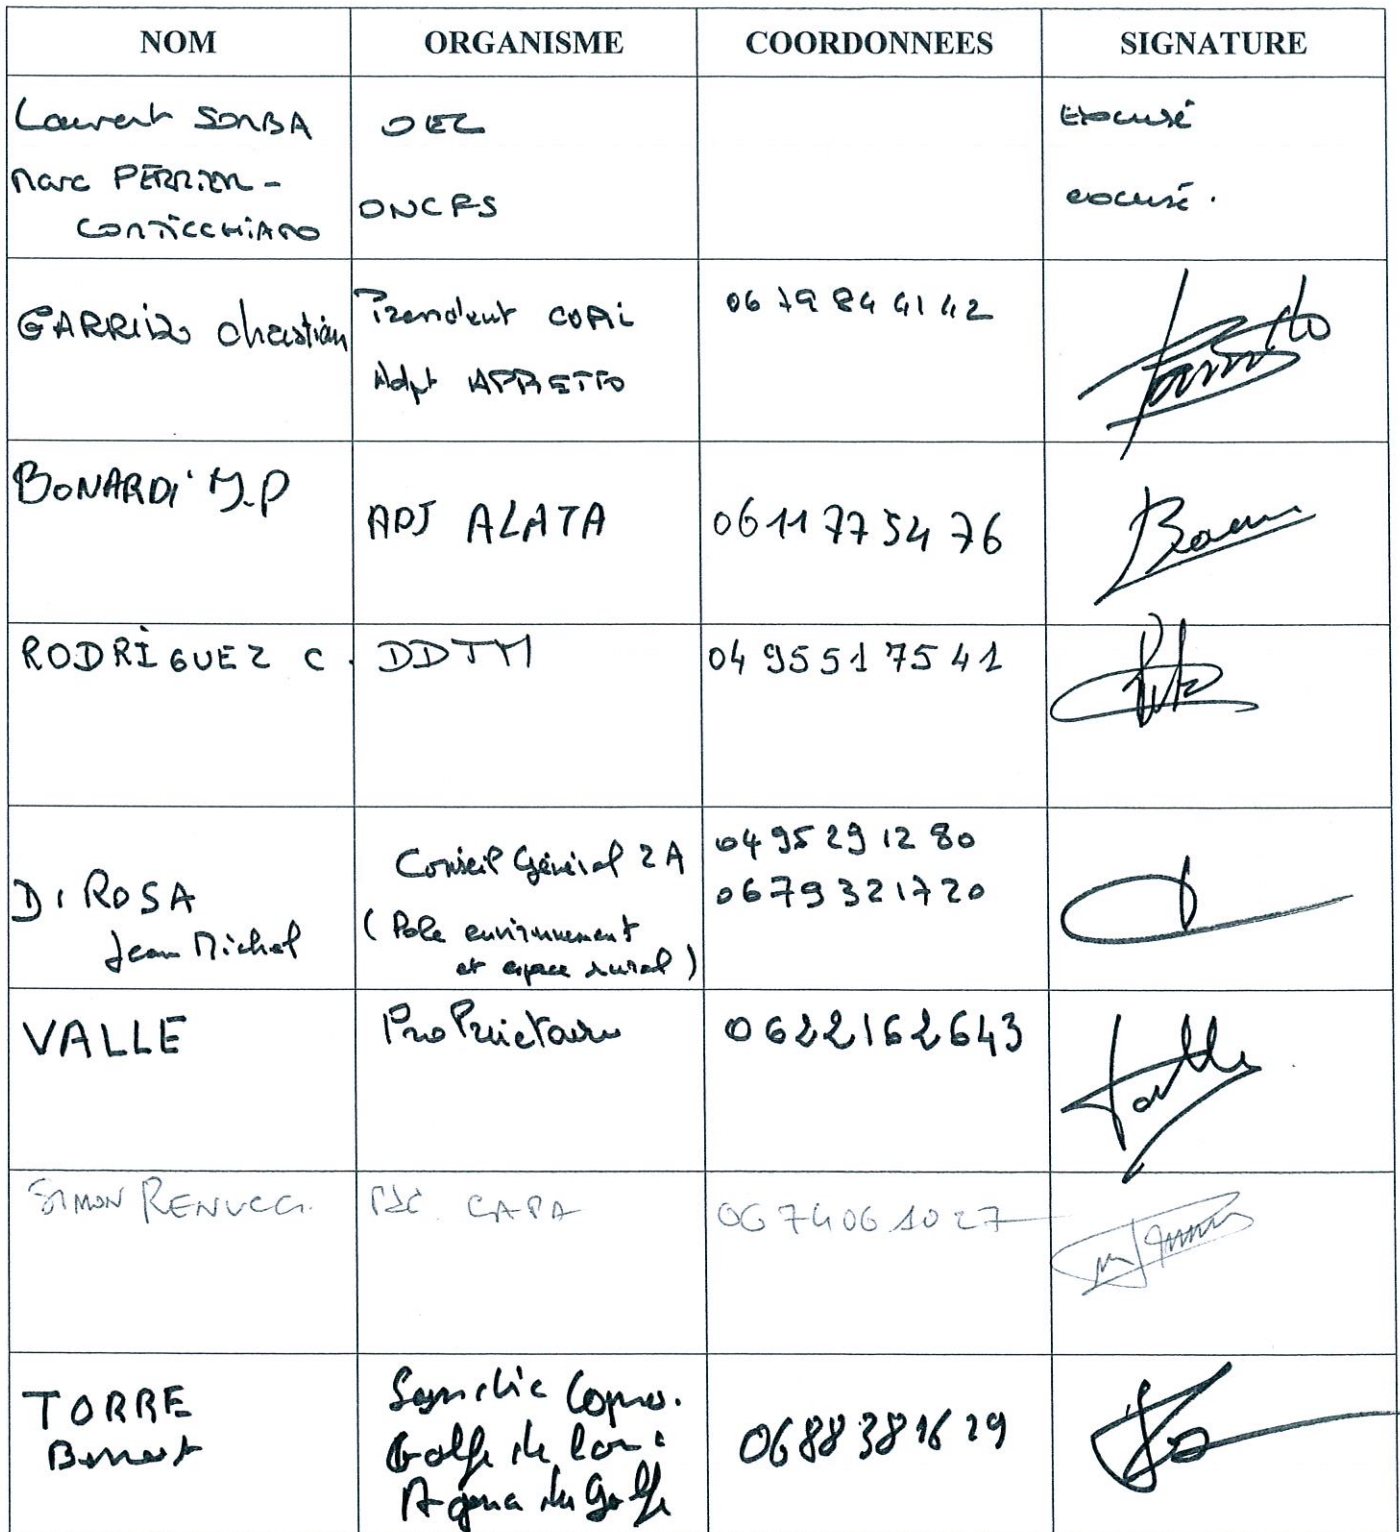 NOM ORGANISME COORDONNEES SIGNATURE
Laurent SORBA OEC Excusé
Marc PERRIER-
CORTICCHIATO ONCFS excusé.
GARRIDO Christian President COPIL 06 79 84 41 42
Adpt APPIETTO
BONARDI J.P ADJ ALATA 06 11 77 54 76
RODRIGUEZ C. DDTM 04 95 51 75 41
DI ROSA
Jean Michel
Conseil Général 2A
(Pole environnement
et espace rural)
04 95 29 12 80
06 79 32 17 20
VALLE Proprietaire 0622162643
SIMON RENUCCI CAPA 06 74 06 10 27
TORRE
Golfe de
du Golfe
06 88 38 16 29